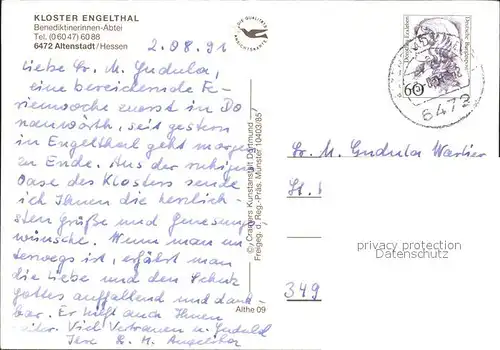 KLOSTER ENGELTHAL
Benediktinerinnen-Abtei
Tel. (0 60 47) 60 88
6472 Altenstadt/Hessen
2.08.91
Liebe Sr. M. Gudula,
eine bereichernde Fe-
rienwoche zuerst in Do-
nauwörth, seit gestern
in Engelthal geht morgen
zu Ende. Aus der ruhigen
Oase des Klosters sende
ich Ihnen die herzlich-
sten Grüße und Genesungs
wünsche. Wenn man un-
terwegs ist, erfährt man
die Liebe und den Schutz
Gottes auffallend und dank-
bar. Er hilft auch Ihnen
weiter. Viel Vertrauen u. Geduld
Ihre Sr. M.
© Cramers Kunstanstalt Dortmund
Freigeg. d. Reg.-Präs. Münster 10403/85
Althe 09
IN QUALITÄTS
ANSICHTSKARTE
Deutsche Bundespost
60
6472
Sr. M. Gudula
St.
349
privacy protection
Datenschutz